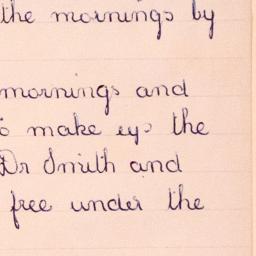 the mornings by
mornings and
to make up the
Dr Smith and
free under the